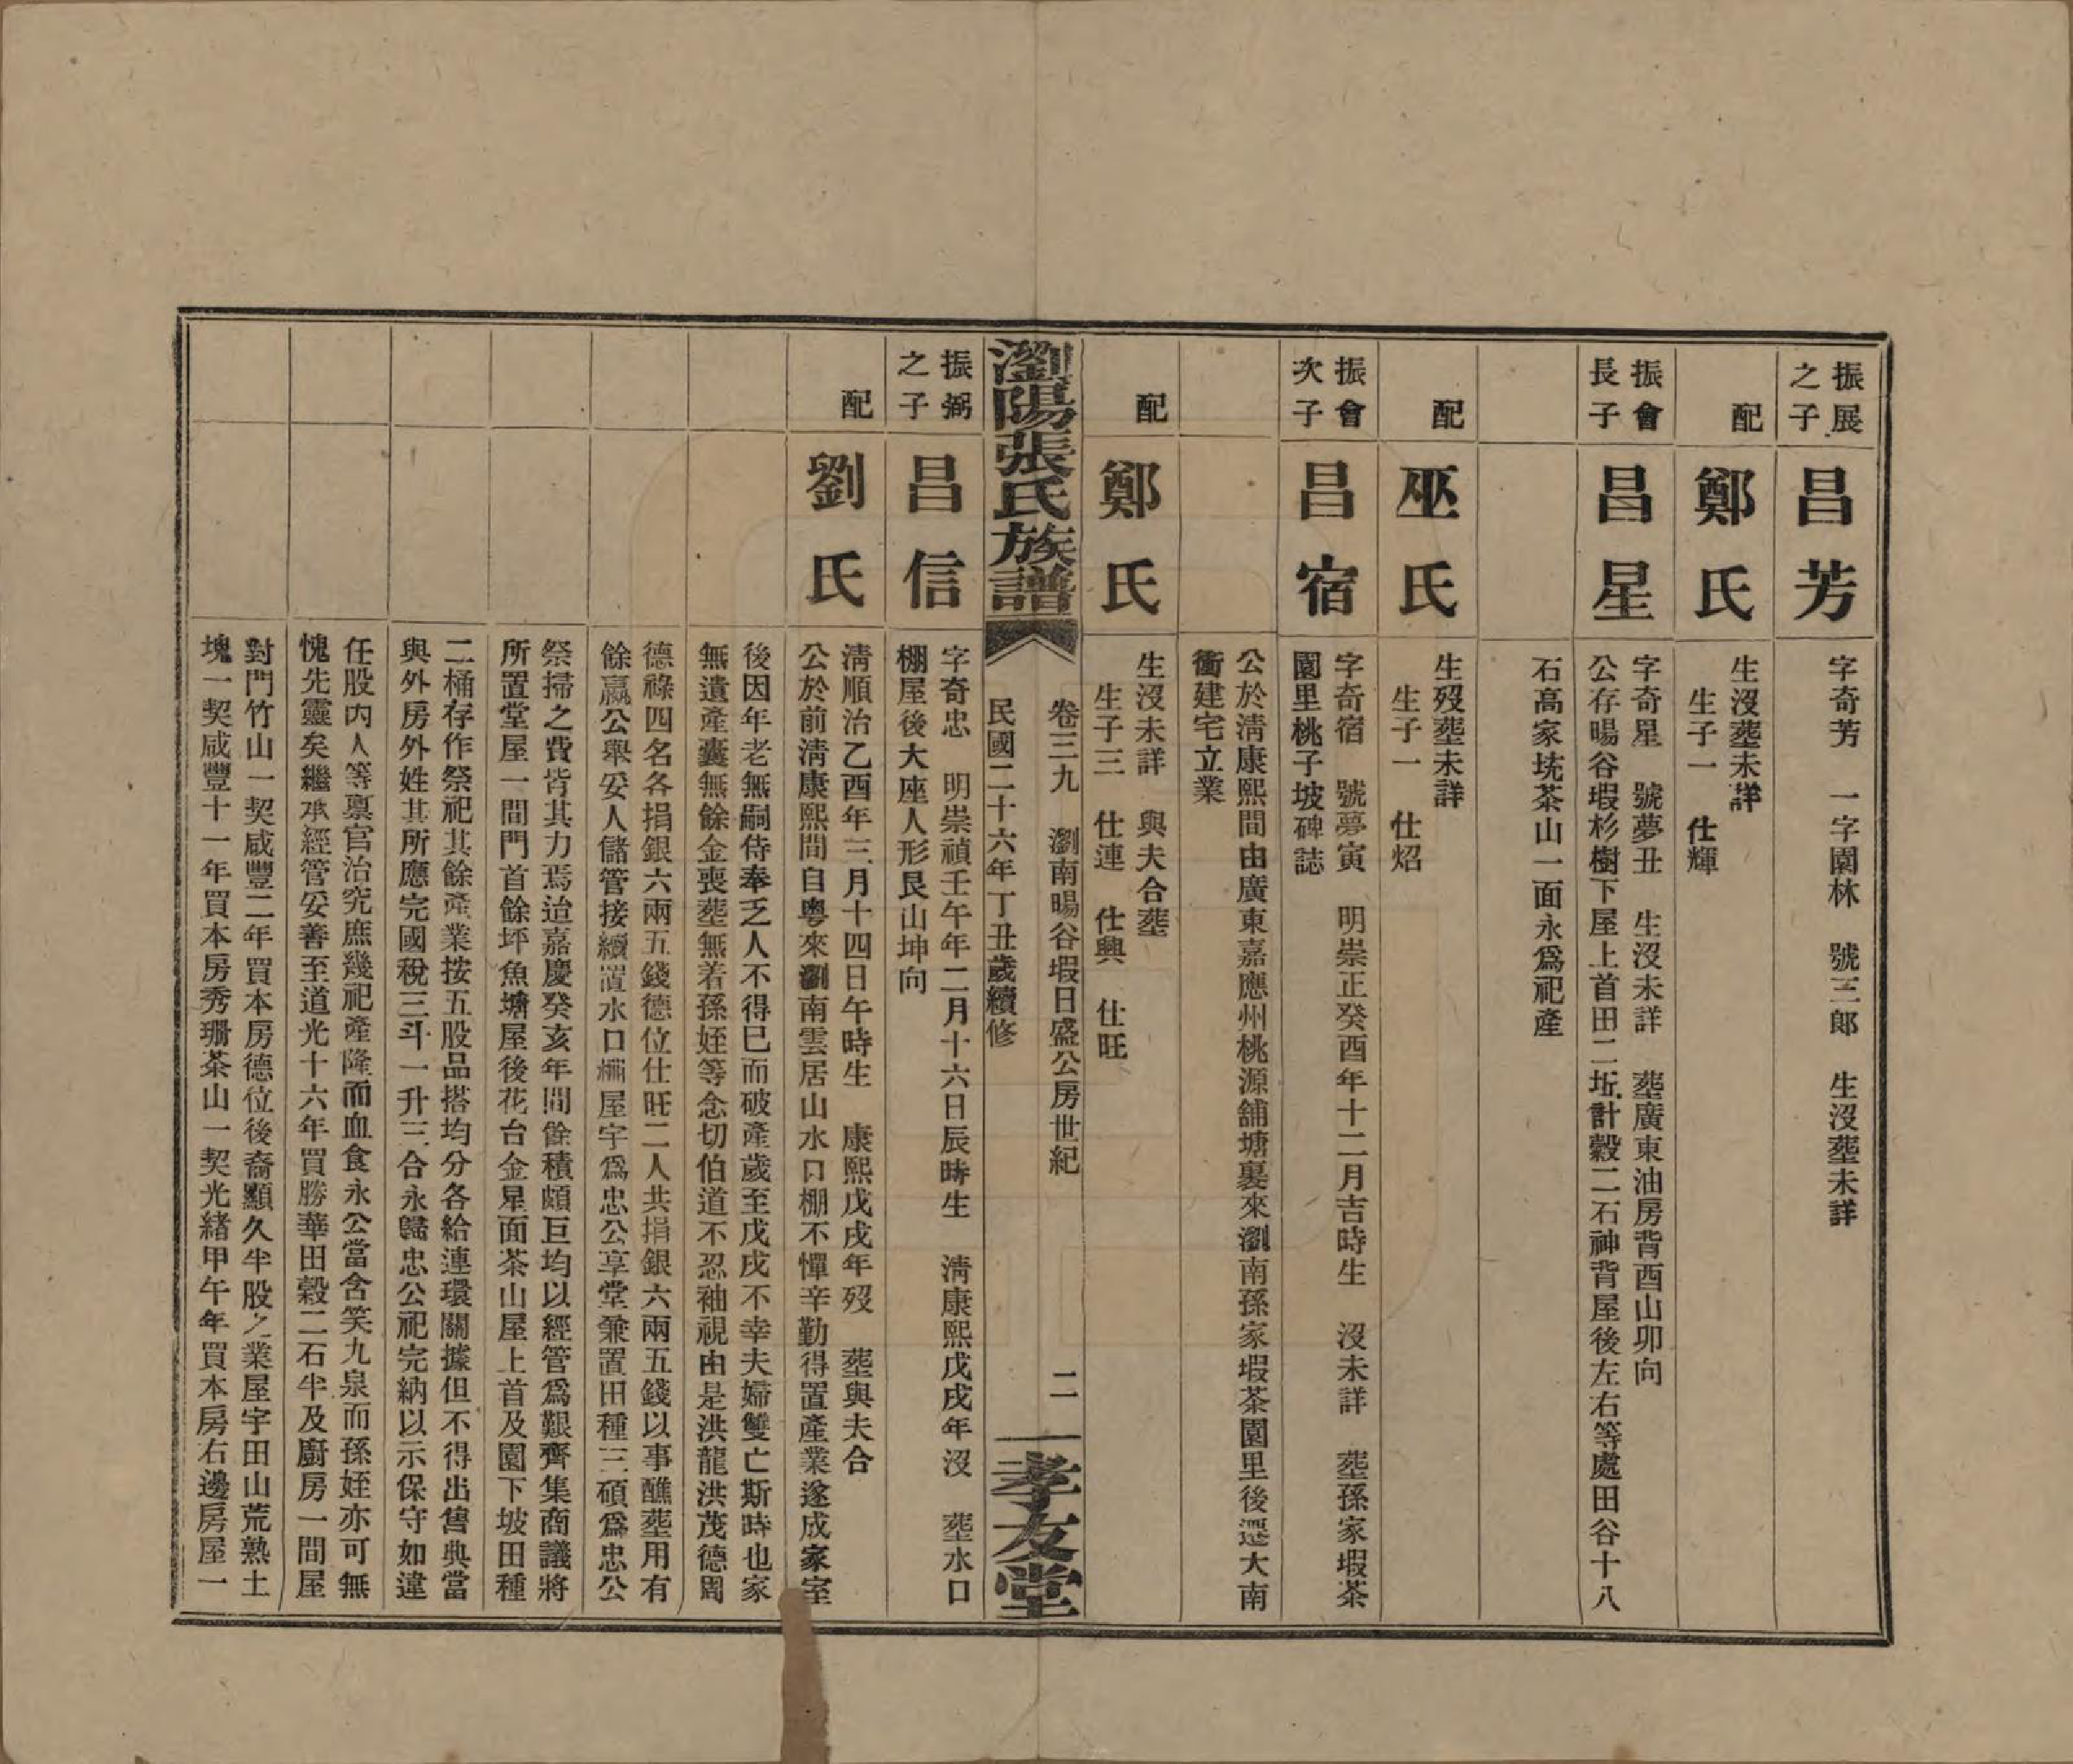 振展
之子
昌芳
字奇芳　一字園林　號三郎　生沒塟未詳
配
鄭氏
生沒塟未詳
生子一　仕輝
振會
長子
昌星
字奇星　號夢丑　生沒未詳　塟廣東油房背酉山卯向
公存暘谷塅杉樹下屋上首田二坵計穀二石神背屋後左右等處田谷十八
石高家坑茶山一面永爲祀產
配
巫氏
生歿塟未詳
生子一　仕炤
振會
次子
昌宿
字奇宿　號夢寅　明崇正癸酉年十二月吉時生　沒未詳　塟孫家塅茶
園里桃子坡碑誌
公於淸康熙間由廣東嘉應州桃源舖塘裏來瀏南孫家塅茶園里後遷大南
衝建宅立業
配
鄭氏
生沒未詳　與夫合塟
生子三　仕連　仕興　仕旺
瀏陽張氏族譜
卷三九　瀏南暘谷塅日盛公房世紀　二
民國二十六年丁丑歲續修
孝友堂
振弼
之子
昌信
字奇忠　明崇禎壬午年二月十六日辰時生　淸康熙戊戌年沒　塟水口
棚屋後大座人形艮山坤向
配
劉氏
淸順治乙酉年三月十四日午時生　康熙戊戌年歿　塟與夫合
公於前淸康熙間自粵來瀏南雲居山水口棚不憚辛勤得置產業遂成家室
後因年老無嗣侍奉乏人不得巳而破產歲至戊戌不幸夫婦雙亡斯時也家
無遺產囊無餘金喪塟無若孫姪等念切伯道不忍袖視由是洪龍洪茂德周
德祿四名各捐銀六兩五錢德位仕旺二人共捐銀六兩五錢以事醮塟用有
餘嬴公舉妥人儲管接續置水口棚屋宇爲忠公享堂兼置田種三碩爲忠公
祭掃之費皆其力焉迨嘉慶癸亥年間餘積頗巨均以經管爲艱齊集商議將
所置堂屋一間門首餘坪魚塘屋後花台金星面茶山屋上首及園下坡田種
二桶存作祭祀其餘產業按五股品搭均分各給連環關據但不得出售典當
與外房外姓其所應完國稅三斗一升三合永歸忠公祀完納以示保守如違
任股內人等禀官治究庶幾祀產隆而血食永公當含笑九泉而孫姪亦可無
愧先靈矣繼承經管妥善至道光十六年買勝華田穀二石半及廚房一間屋
對門竹山一契咸豐二年買本房德位後裔顯久半股之業屋宇田山荒熟土
塊一契咸豐十一年買本房秀珊茶山一契光緒甲午年買本房右邊房屋一